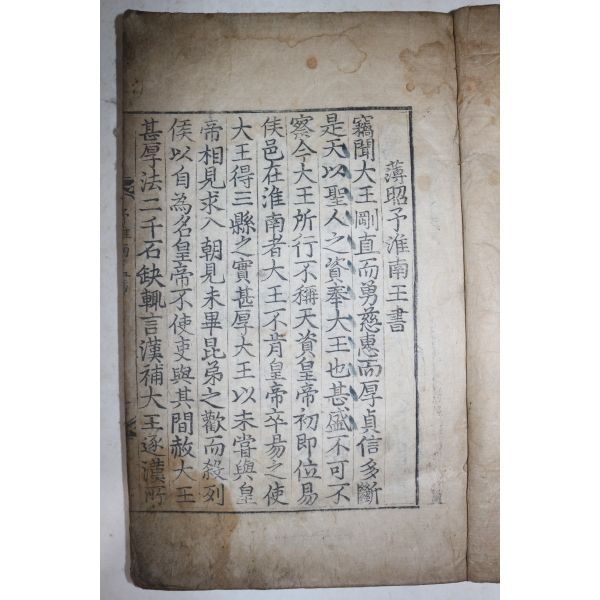 薄昭予淮南王書
竊聞大王剛直而勇慈惠而厚貞信多斷
是天以聖人之資奉大王也甚盛不可不
察今大王所行不稱天資皇帝初即位易
侯邑在淮南者大王不肯皇帝卒易之使
大王得三縣之實甚厚大王以未嘗與皇
帝相見求入朝見未畢昆弟之歡而殺列
侯以自為名皇帝不使吏與其間赦大王
甚厚法二千石缺輒言漢補大王逐漢所
予淮南